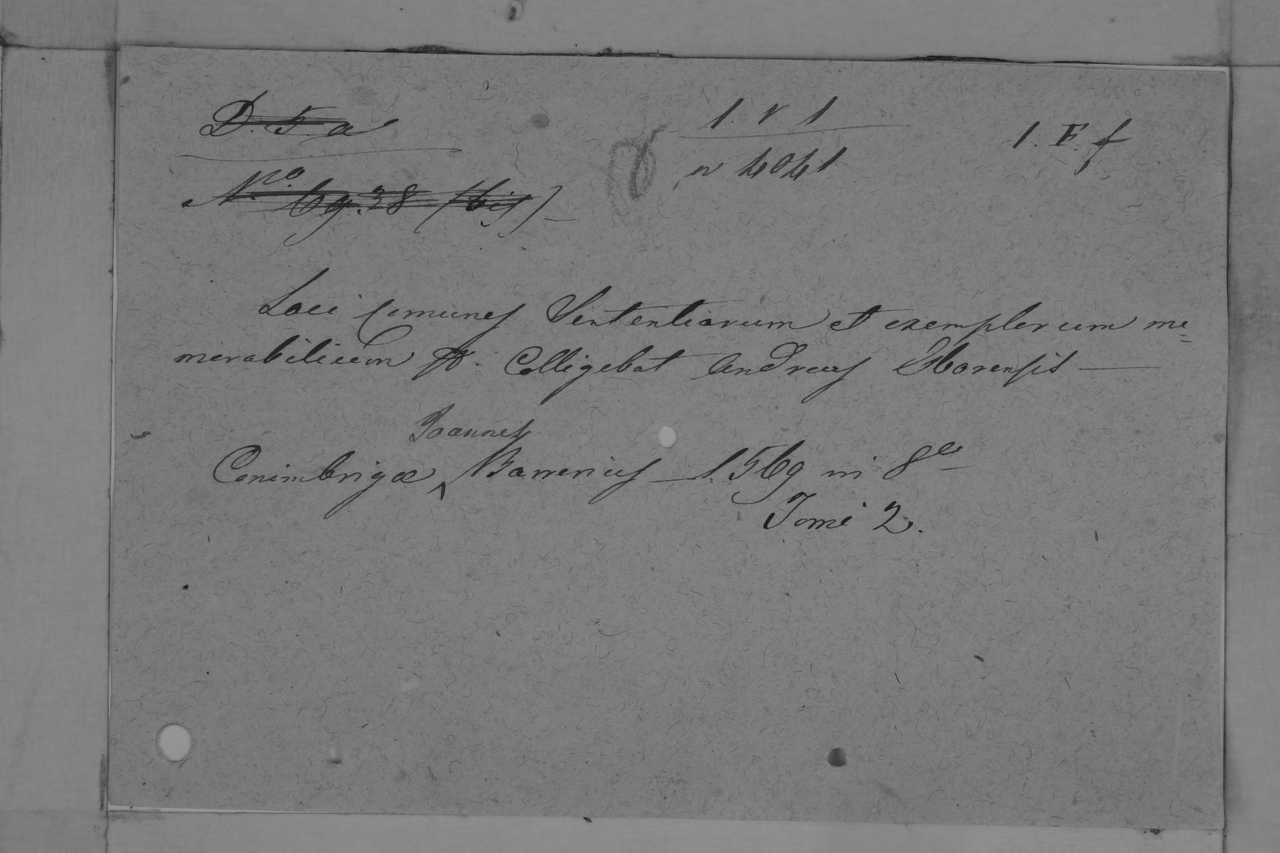 D. 5. a
1. v 1
1. F. f
No. 6938 (bis)
n 4041
Loci comunes Sententiarum et exemplorum me=
morabilium &. Colligebat Andreas Eborensis —
Joannes
Conimbrigæ ‸ Barrerius — 1569 in 8º
Tomi 2.